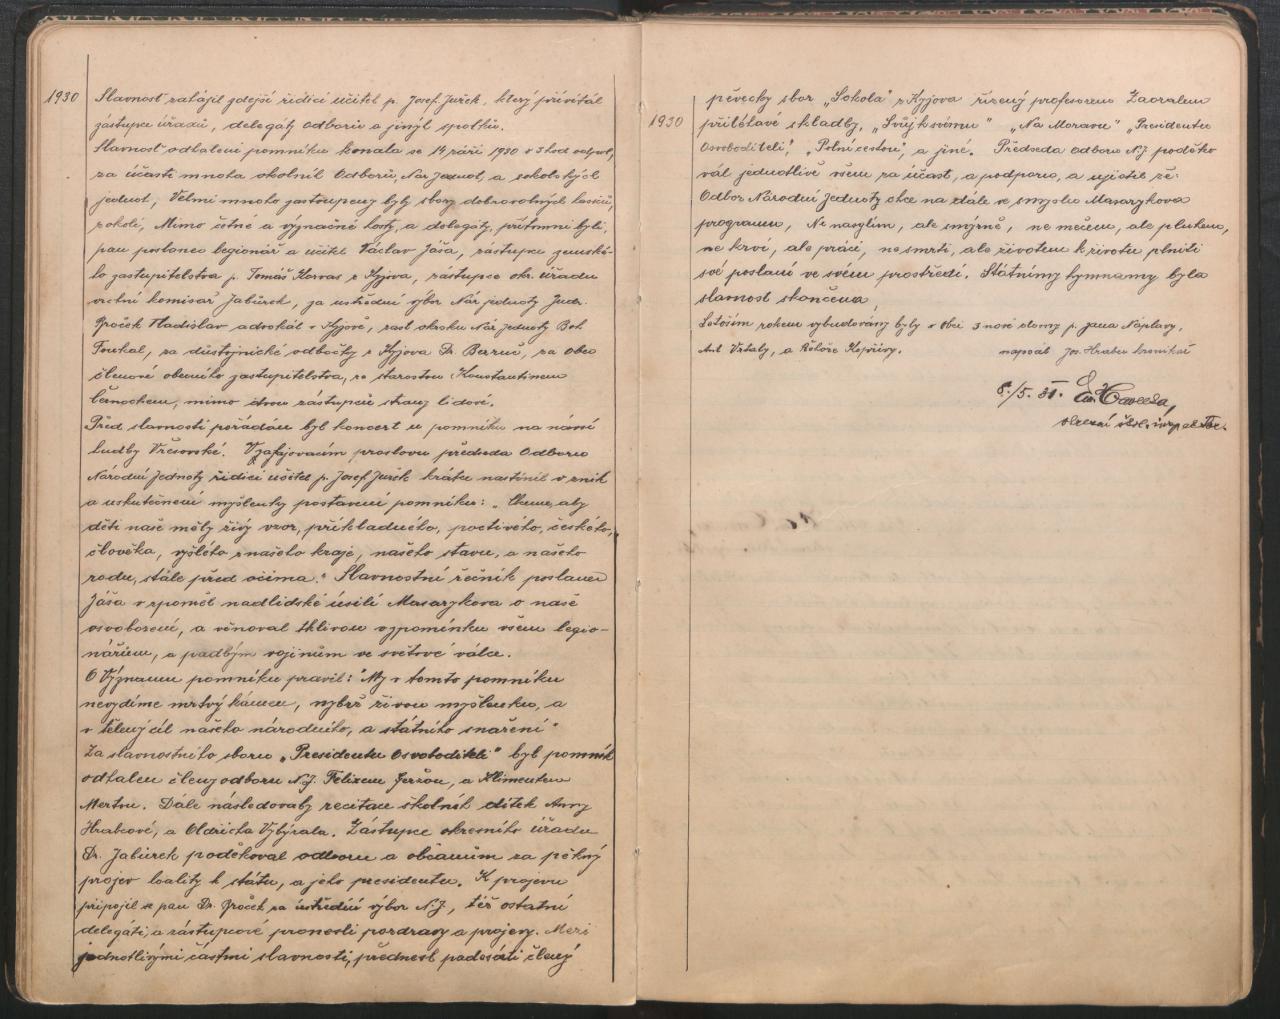 1930
Slavnost zahájil zdejší řídící učitel p. Josef Juřek, který přivítal
zástupce úřadů, delegáty odborů a jiných spolků.
Slavnost odhalení pomníku konala se 14 září 1930 o 3 hod odpol,
za účasti mnoha okolních Odborů, Nár Jednot, a sokolských
jednot, Velmi mnoho zastoupeny byly sbory dobrovolných hasičů,
z okolí, Mimo četné a význačné hosty, a delegáty, přítomni byli,
pan poslanec legionář a učitel Václav Jáša, zástupce zemské-
ho zastupitelstva p. Tomáš Horvas z Kyjova, zástupce okr. úřadu
vrchní komisař Jabůrek, za ústřední výbor Nár jednoty Judr.
Proček Vladislav advokát v Kyjově, zast okrsku Nár Jednoty Boh
Foukal, za důstojnické odbočky z Kyjova Dr. Bezruč, za Obec
členové obecního zastupitelstva, se starostou Konstantinem
Černochem, mimo dvou zástupců strany lidové.
Před slavností pořádán byl koncert u pomníku na návsi
hudby Vřesovské. V zahajovacím proslovu předseda Odboru
Národní Jednoty řídící učitel p. Josef Juřek krátce nastínil vznik
a uskutečnění myšlenky postavení pomníku: „Chceme, aby
děti naše měly živý vzor, příkladného, poctivého, českého,
člověka, vyšlého z našeho kraje, našeho stavu, a našeho
rodu, stále před očima." Slavnostní řečník poslanec
Jáša vzpoměl nadlidské úsilí Masarykova o naše
osvobození, a věnoval tklivou vzpomínku všem legio-
nářům, a padlým vojínům ve světové válce.
O Významu pomníku pravil: "My v tomto pomníku
nevydíme mrtvý kámen, nýbrž živou myšlenku, a
vtělený cíl našeho národního, a státního snažení"
Za slavnostního sboru „Presidentu Osvoboditeli" byl pomník
odhalen členy odboru N.J. Felixem Jeržou, a Klimentem
Mertou. Dále následovaly recitace školních dítek Anny
Hrabcové, a Oldřicha Vybýrala. Zástupce okresního úřadu
Dr. Jabůrek poděkoval odboru a občanům za pěkný
projev loality k státu, a jeho presidentu. K projevu
připojil se pan Dr. Proček za ústřední výbor N.J., též ostatní
delegáti, a zástupcové pronesli pozdravy a projevy. Mezi
jednotlivými částmi slavnosti, přednesl padesáti členný
1930
pěvecký sbor „Sokola" z Kyjova řízený profesorem Zaoralem
přiléhavé skladby, „Svůj k svému" „Na Moravu" „Presidentu
Osvoboditeli," „Polní cestou", a jiné. Předseda odboru N.J. poděko
val jednotlivě všem za účast, a podporu, a ujistil že:
Odbor Národní Jednoty chce na dále ve smyslu Masarykova
programu, Ne násylím, ale smýrně, ne mečem, ale pluhem,
ne krví, ale prácí, ne smrtí, ale životem k životu plniti
své poslaní ve svém prostředí. Státnímy hymnamy byla
slavnost skončena,
Letošním rokem vybudovány byly v Obci 3 nové domy p. Jana Náplavy,
Ant Vrbaly, a Řehoře Kopřivy. napsal Jos. Hrabec kronikář
8./5. 31. Havelka,